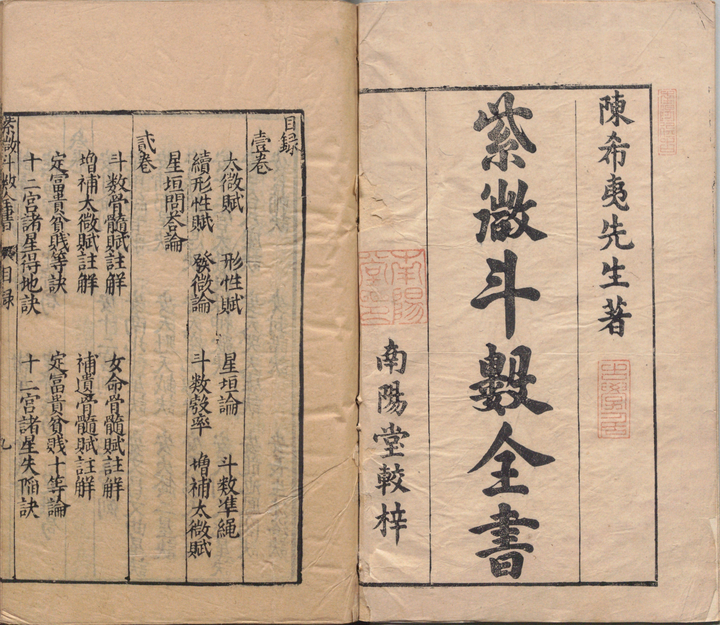 陳希夷先生著
紫微斗數全書
南陽堂較梓
南陽
目録
壹卷
太微賦 形性賦 星垣論 斗数準繩
續形性賦 發微論 斗数彀率 增補太微賦
星垣問答論
貳卷
斗数骨髓賦註解 女命骨髓賦註解
增補太微賦註解 補遺骨髓賦註解
定富貴貧賤等訣 定富貴貧賤十等論
十二宮諸星得地訣 十二宮諸星失陷訣
紫微斗數全書 目録 九